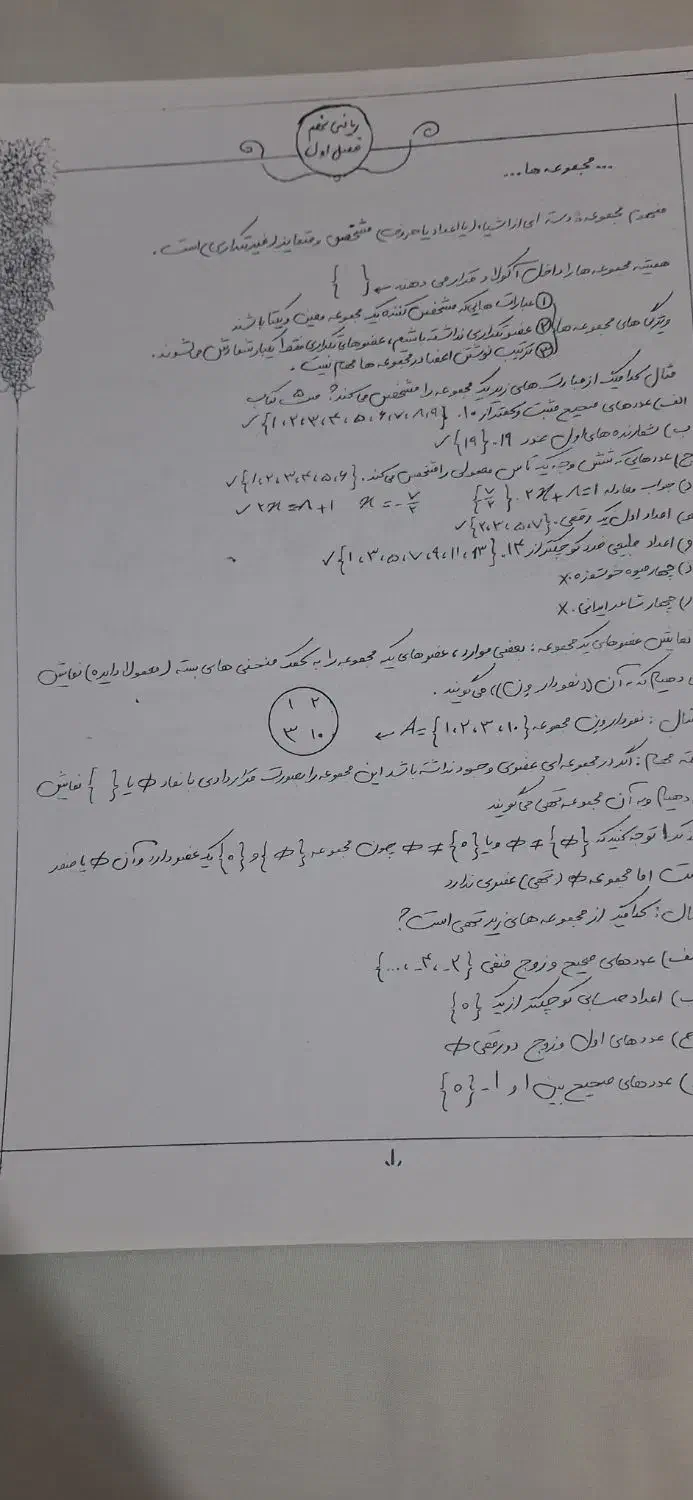 ریاضی نهم
فصل اول
... مجموعه ها...
مفهوم مجموعه: دسته ای از اشیاء (یا اعداد یا حروف) مشخص و متمایز (غیرتکراری) است.
همیشه مجموعه ها را داخل آکولاد قرار می دهند ← { }
ویژگی های مجموعه ها
① عبارت هایی که مشخص کننده یک مجموعه معین و یکتا باشند
② عضو تکراری نداشته باشیم، عضوهای تکراری فقط یکبار شمارش می شوند.
③ ترتیب نوشتن اعضا در مجموعه ها مهم نیست.
مثال کدامیک از عبارت های زیر یک مجموعه را مشخص می کند؟ ص۵ کتاب
الف) عددهای صحیح مثبت و کمتر از ۱۰. {۱،۲،۳،۴،۵،۶،۷،۸،۹} ✓
ب) شمارنده های اول عدد ۱۹. {۱۹} ✓
ج) عددهایی که شش وجه یک تاس معمولی را مشخص می کند. {۱،۲،۳،۴،۵،۶} ✓
د) جواب معادله ۲x+۸=۱. {۷/۲} x=-۷/۲ ۲x=۸+۱ ✓
ه) اعداد اول یک رقمی. {۲،۳،۵،۷} ✓
و) اعداد طبیعی فرد کوچکتر از ۱۴. {۱،۳،۵،۷،۹،۱۱،۱۳} ✓
ز) چهار میوه خوشمزه. ×
چهار شاعر ایرانی. ×
نمایش عضوهای یک مجموعه: بعضی موارد، عضوهای یک مجموعه را به کمک منحنی های بسته (معمولا دایره) نمایش
دهیم که به آن ((نمودار ون)) می گویند.
مثال: نمودار ون مجموعه A={۱،۲،۳،۱۰} ←
۱ ۲
۳ ۱۰
مهم: اگر در مجموعه ای عضوی وجود نداشته باشد این مجموعه را بصورت قراردادی با نماد ∅ یا { } نمایش
دهیم و به آن مجموعه تهی می گویند
توجه کنید که {∅}≠∅ و یا {۰}≠∅ چون مجموعه {∅} و {۰} یک عضو دارد و آن ∅ یا صفر
است اما مجموعه ∅ (تهی) عضوی ندارد
مثال: کدامیک از مجموعه های زیر تهی است؟
الف) عددهای صحیح و زوج منفی {-۲،-۴،...}
ب) اعداد حسابی کوچکتر از یک {۰}
ج) عددهای اول و زوج دورقمی ∅
عددهای صحیح بین ۱ و ۱- {۰}
۱